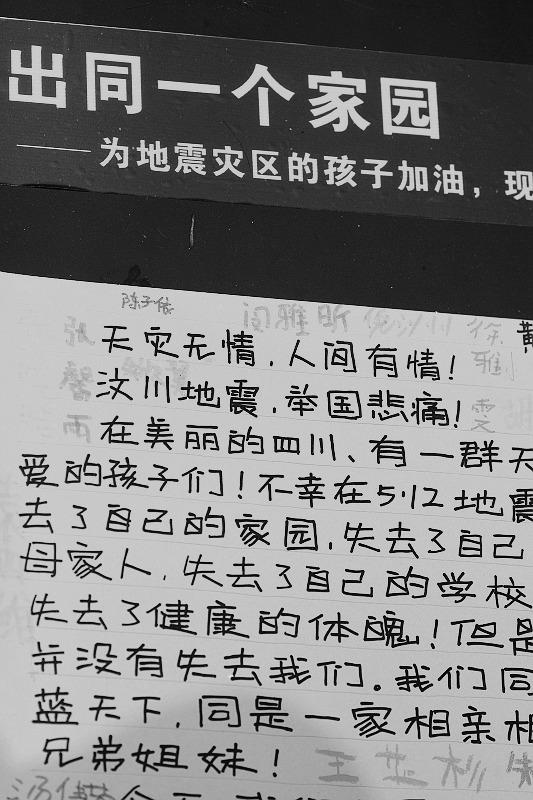 出同一个家园
——为地震灾区的孩子加油，现
陈子依
闵雅昕
张馨雨
徐雅雯
黄
天灾无情，人间有情！
汶川地震，举国悲痛！
在美丽的四川、有一群天
爱的孩子们！不幸在5·12地震
去了自己的家园，失去了自己
母家人，失去了自己的学校
失去了健康的体魄！但是
并没有失去我们。我们同
蓝天下，同是一家相亲相
兄弟姐妹！